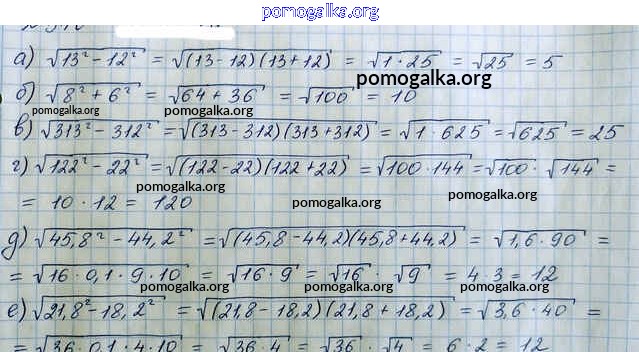 pomogalka.org
а) √13² - 12² = √(13-12)(13+12) = √1·25 = √25 = 5
pomogalka.org
б) √8² + 6² = √64 + 36 = √100 = 10
pomogalka.org pomogalka.org
в) √313² - 312² = √(313-312)(313+312) = √1·625 = √625 = 25
г) √122² - 22² = √(122-22)(122+22) = √100·144 = √100 · √144 =
pomogalka.org pomogalka.org
= 10 · 12 = 120
pomogalka.org
д) √45,8² - 44,2² = √(45,8-44,2)(45,8+44,2) = √1,6·90 =
= √16·0,1·9·10 = √16·9 = √16 · √9 = 4·3 = 12
pomogalka.org pomogalka.org pomogalka.org
е) √21,8² - 18,2² = √(21,8-18,2)(21,8+18,2) = √3,6·40 =
= √36·0,1·4·10 = √36·4 = √36 · √4 = 6·2 = 12